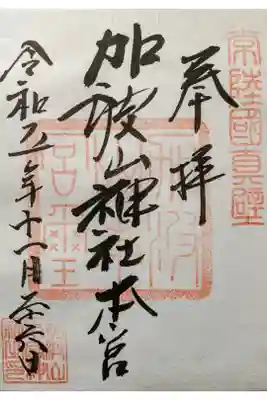 常陸國真壁
奉拝
加波山神社本宮
令和五年十一月二十六日